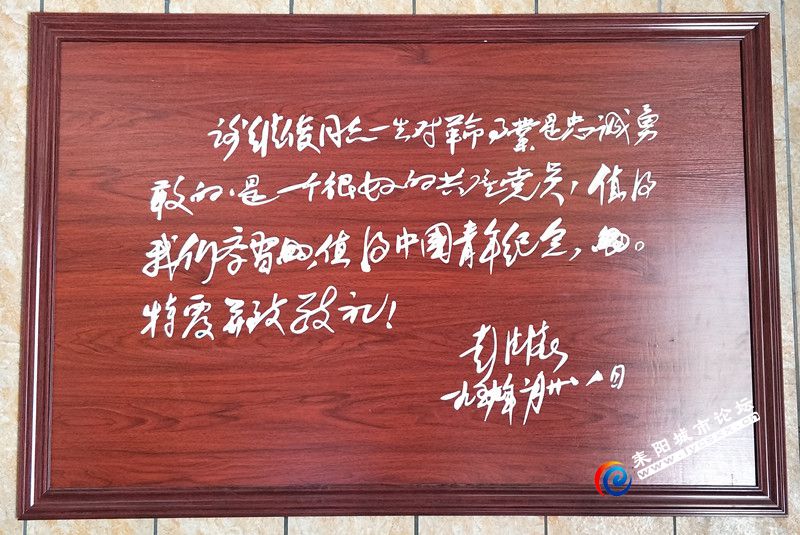 谢维俊同志一生对革命事業是忠诚勇
敢的,是一个很好的共产党员,值得
我们学習的,值得中國青年纪念的。
特覆并致敬礼!
彭德怀
一九五年月廿八日
耒阳城市论坛